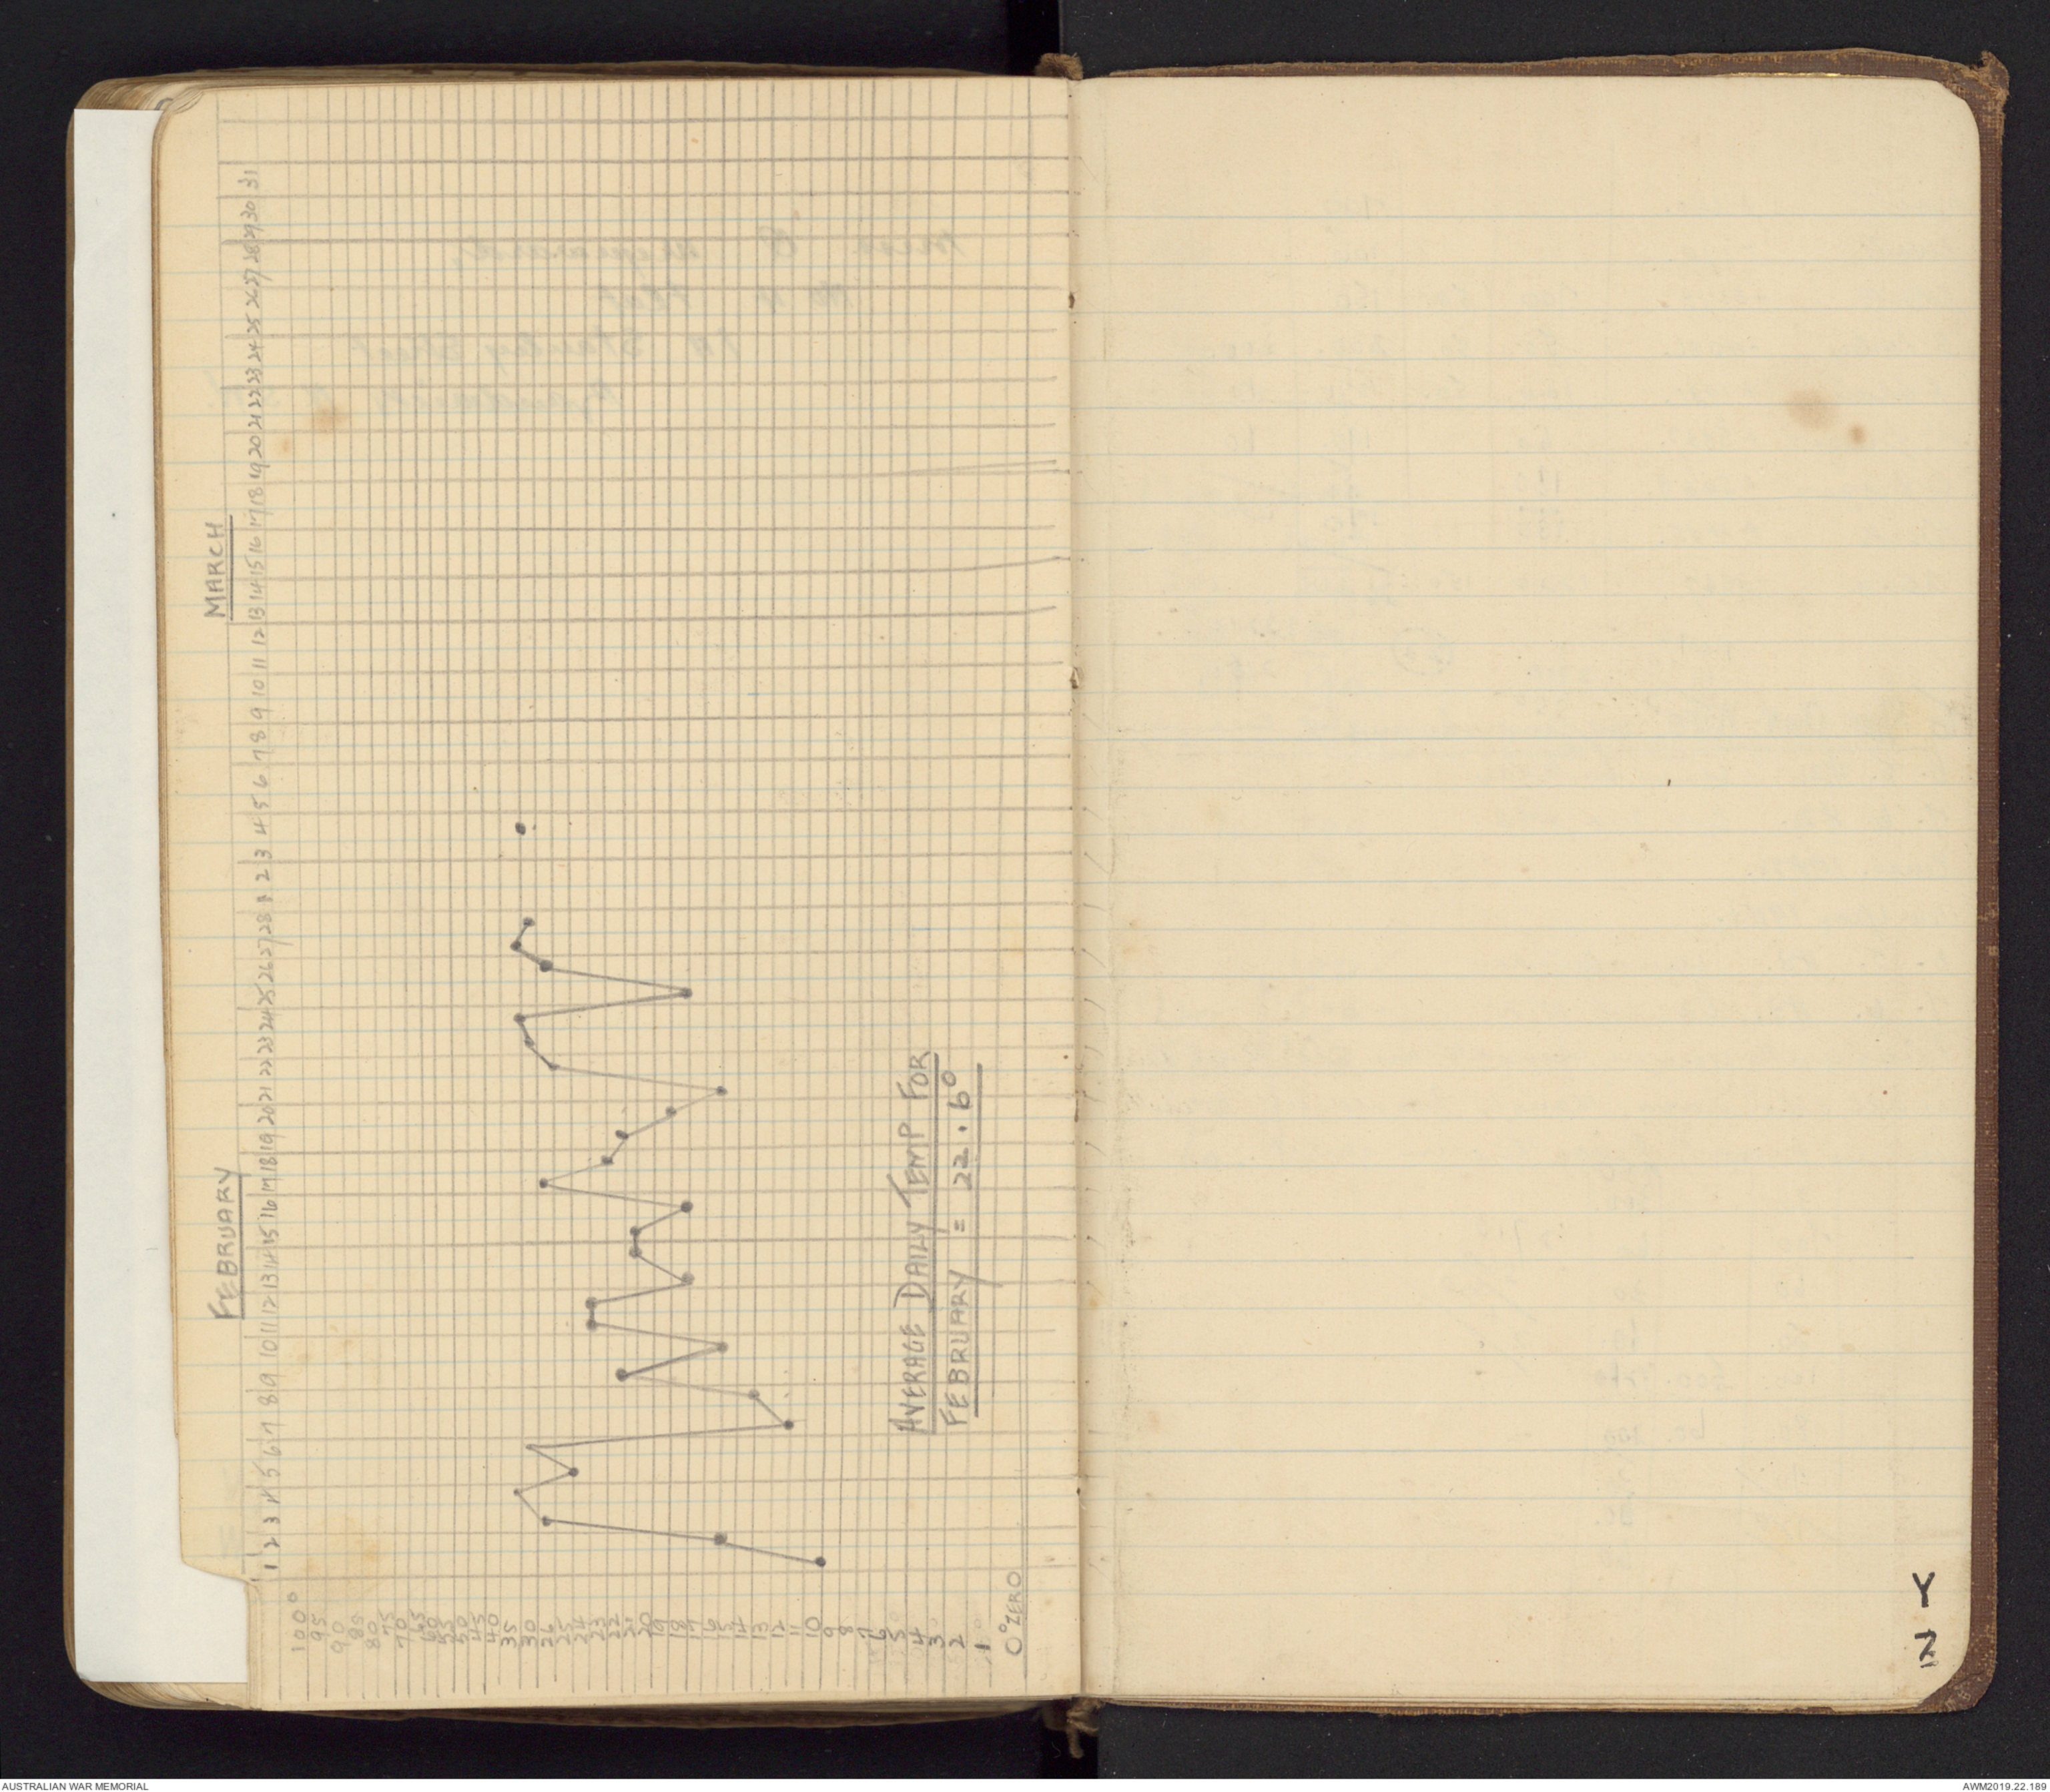 FEBRUARY
MARCH
1 2 3 4 5 6 7 8 9 10 11 12 13 14 15 16 17 18 19 20 21 22 23 24 25 26 27 28 1 2 3 4 5 6 7 8 9 10 11 12 13 14 15 16 17 18 19 20 21 22 23 24 25 26 27 28 29 30 31
100°
95
90
85
80
75
70
65
60
55
50
45
40
35
30
26
25
24
23
22
21
20
19
18
17
16
15
14
13
12
11
10
9
8
7
6
5
4
3
2
1
0° ZERO
AVERAGE DAILY TEMP FOR
FEBRUARY = 22.6°
Y
Z
AUSTRALIAN WAR MEMORIAL
AWM2019.22.189